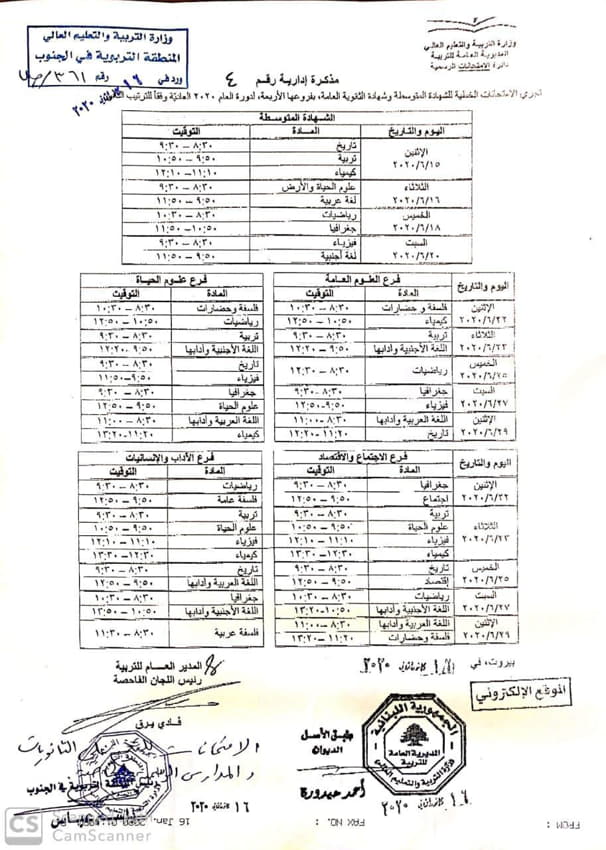 وزارة التربية والتعليم العالي
المديرية العامة للتربية
دائرة الامتحانات الرسمية
وزارة التربية والتعليم العالي
المنطقة التربوية في الجنوب
ورد في ١٦ كانون ثاني ٢٠٢٠ رقم ٣٦١
مذكرة إدارية رقم ٤
تجري الامتحانات الخطية للشهادة المتوسطة وشهادة الثانوية العامة، بفروعها الأربعة، لدورة العام ٢٠٢٠ العادية وفقاً للترتيب
الشهادة المتوسطة
اليوم والتاريخ المادة التوقيت
الإثنين ٢٠٢٠/٦/١٥
تاريخ ٨:٣٠ – ٩:٣٠
تربية ٩:٥٠ – ١٠:٥٠
كيمياء ١١:١٠ – ١٢:١٠
الثلاثاء ٢٠٢٠/٦/١٦
علوم الحياة والأرض ٨:٣٠ – ٩:٣٠
لغة عربية ٩:٥٠ – ١١:٥٠
الخميس ٢٠٢٠/٦/١٨
رياضيات ٨:٣٠ – ١٠:٣٠
جغرافيا ١٠:٥٠ – ١١:٥٠
السبت ٢٠٢٠/٦/٢٠
فيزياء ٨:٣٠ – ٩:٣٠
لغة أجنبية ٩:٥٠ – ١١:٥٠
اليوم والتاريخ فرع العلوم العامة فرع علوم الحياة
المادة التوقيت المادة التوقيت
الإثنين ٢٠٢٠/٦/٢٢
فلسفة وحضارات ٨:٣٠ – ١٠:٣٠ فلسفة وحضارات ٨:٣٠ – ١٠:٣٠
كيمياء ١٠:٥٠ – ١٢:٥٠ رياضيات ١٠:٥٠ – ١٢:٥٠
الثلاثاء ٢٠٢٠/٦/٢٣
تربية ٨:٣٠ – ٩:٣٠ تربية ٨:٣٠ – ٩:٣٠
اللغة الأجنبية وآدابها ٩:٥٠ – ١٢:٢٠ اللغة الأجنبية وآدابها ٩:٥٠ – ١٢:٢٠
الخميس ٢٠٢٠/٦/٢٥
رياضيات ٨:٣٠ – ١٢:٣٠ تاريخ ٨:٣٠ – ٩:٣٠
فيزياء ٩:٥٠ – ١١:٥٠
السبت ٢٠٢٠/٦/٢٧
جغرافيا ٨:٣٠ – ٩:٣٠ جغرافيا ٨:٣٠ – ٩:٣٠
فيزياء ٩:٥٠ – ١٢:٥٠ علوم الحياة ٩:٥٠ – ١٢:٥٠
الإثنين ٢٠٢٠/٦/٢٩
اللغة العربية وآدابها ٨:٣٠ – ١١:٠٠ اللغة العربية وآدابها ٨:٣٠ – ١١:٠٠
تاريخ ١١:٢٠ – ١٢:٢٠ كيمياء ١١:٢٠ – ١٣:٢٠
اليوم والتاريخ فرع الاجتماع والاقتصاد فرع الآداب والإنسانيات
المادة التوقيت المادة التوقيت
الإثنين ٢٠٢٠/٦/٢٢
جغرافيا ٨:٣٠ – ٩:٣٠ رياضيات ٨:٣٠ – ٩:٣٠
اجتماع ٩:٥٠ – ١٢:٥٠ فلسفة عامة ٩:٥٠ – ١٢:٥٠
الثلاثاء ٢٠٢٠/٦/٢٣
تربية ٨:٣٠ – ٩:٣٠ تربية ٨:٣٠ – ٩:٣٠
علوم الحياة ٩:٥٠ – ١٠:٥٠ علوم الحياة ٩:٥٠ – ١٠:٥٠
فيزياء ١١:١٠ – ١٢:١٠ فيزياء ١١:١٠ – ١٢:١٠
كيمياء ١٢:٣٠ – ١٣:٣٠ كيمياء ١٢:٣٠ – ١٣:٣٠
الخميس ٢٠٢٠/٦/٢٥
تاريخ ٨:٣٠ – ٩:٣٠ تاريخ ٨:٣٠ – ٩:٣٠
إقتصاد ٩:٥٠ – ١٢:٥٠ اللغة العربية وآدابها ٩:٥٠ – ١٢:٥٠
السبت ٢٠٢٠/٦/٢٧
رياضيات ٨:٣٠ – ١٠:٣٠ جغرافيا ٨:٣٠ – ١٠:٣٠
اللغة الأجنبية وآدابها ١٠:٥٠ – ١٣:٢٠ اللغة الأجنبية وآدابها ١٠:٥٠ – ١٣:٥٠
الإثنين ٢٠٢٠/٦/٢٩
اللغة العربية وآدابها ٨:٣٠ – ١١:٠٠ فلسفة عربية ٨:٣٠ – ١١:٣٠
فلسفة وحضارات ١١:٢٠ – ١٣:٢٠
بيروت، في ١٦ كانون ثاني ٢٠٢٠
المدير العام للتربية
رئيس اللجان الفاحصة
فادي يرق
الموقع الإلكتروني
طبق الأصل
الديوان
الجمهورية اللبنانية
المديرية العامة للتربية
وزارة التربية والتعليم العالي
أحمد حيدورة
١٦ ك٢ ٢٠٢٠
الثانويات
و المدارس
رئيس المنطقة التربوية في الجنوب
١٦ كانون ثاني ٢٠٢٠
CS CamScanner
FROM :
FAX NO. :
16 Jan. 2020